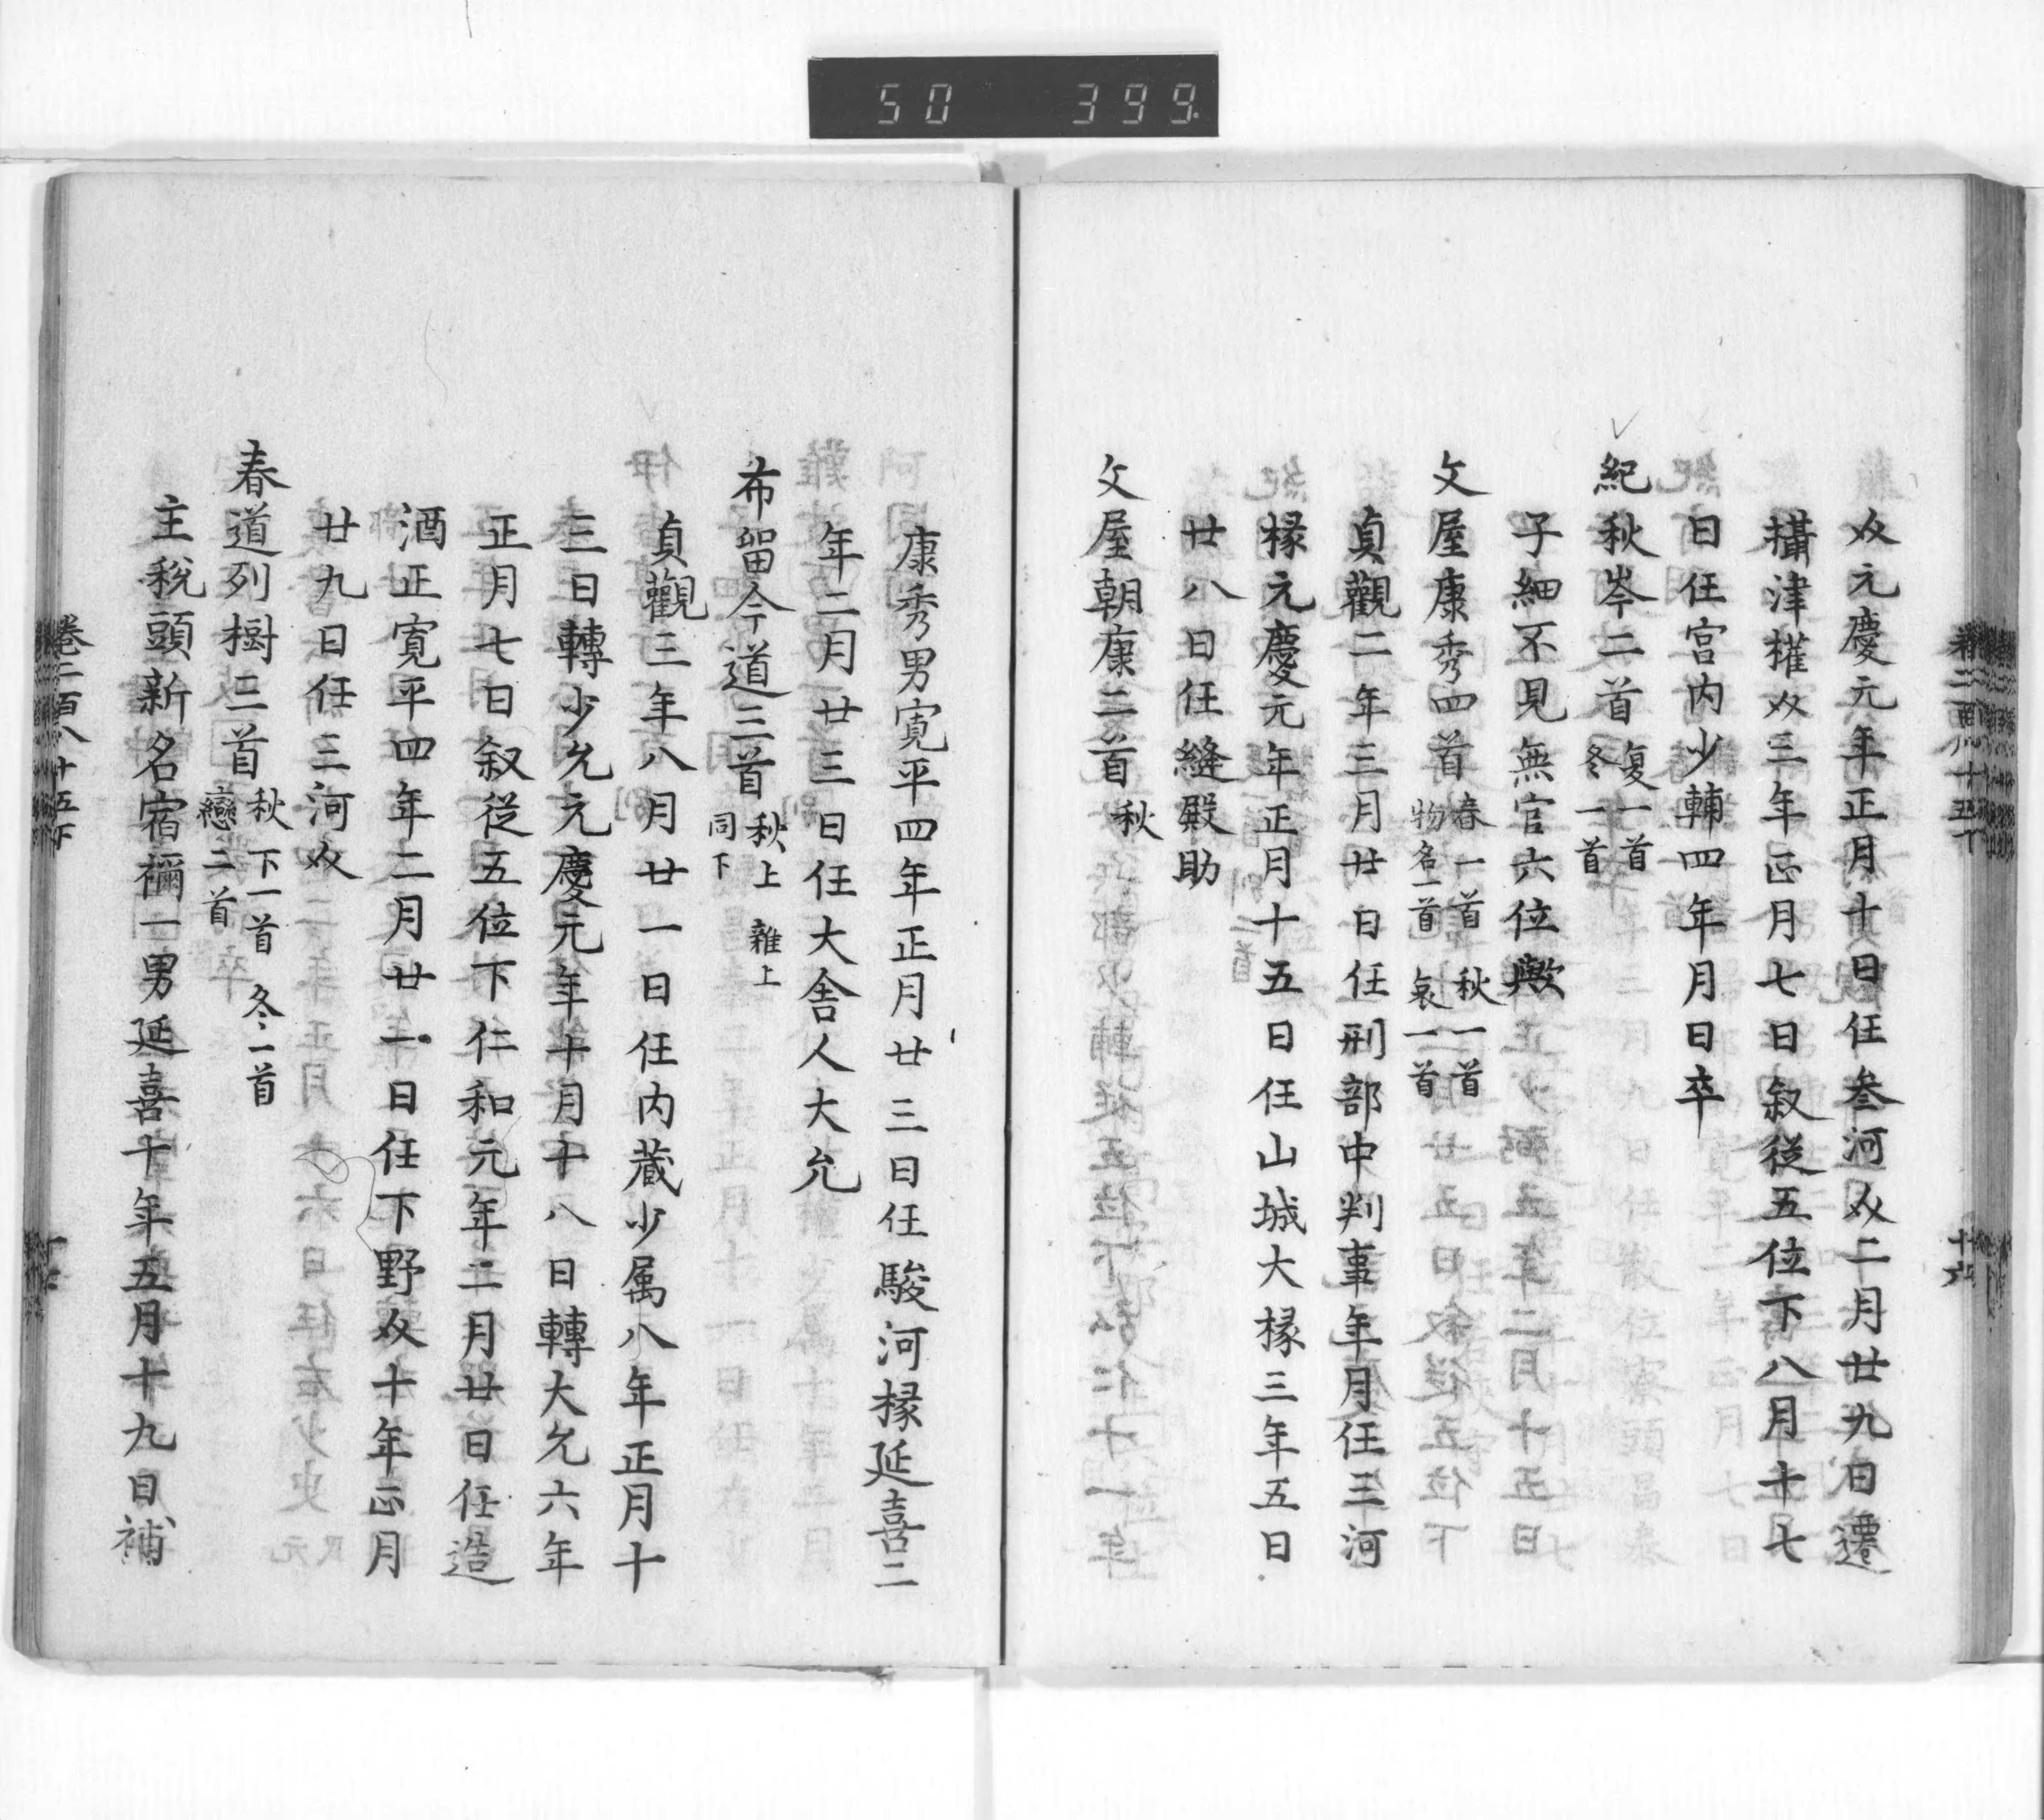 50 399
㸚元慶元年正月十六日任叄河㸚二月廿九日遷
攝津權㸚三年正月七日叙從五位下八月十七
日任宮内少輔四年月日卒
紀秋岑二首 夏一首 冬一首
子細不見無官六位歟
文屋康秀四首 春一首 秋一首 物名一首 哀一首
貞觀二年三月廿日任刑部中判事年月任三河
掾元慶元年正月十五日任山城大掾三年五日
廿八日任縫殿助
文屋朝康二首 秋
康秀男寛平四年正月廿三日任駿河掾延喜二
年二月廿三日任大舎人大允
布留今道三首 秋上 雜上 同下
貞觀三年八月廿一日任内藏少属八年正月十
三日轉少允元慶元年十月十八日轉大允六年
正月七日叙從五位下仁和元年二月廿日任造
酒正寛平四年二月廿一日任下野㸚十年正月
廿九日任三河㸚
春道列樹三首 秋下一首 冬一首 戀二首
主税頭新名宿禰一男延喜十年五月十九日補
卷二百八十五下